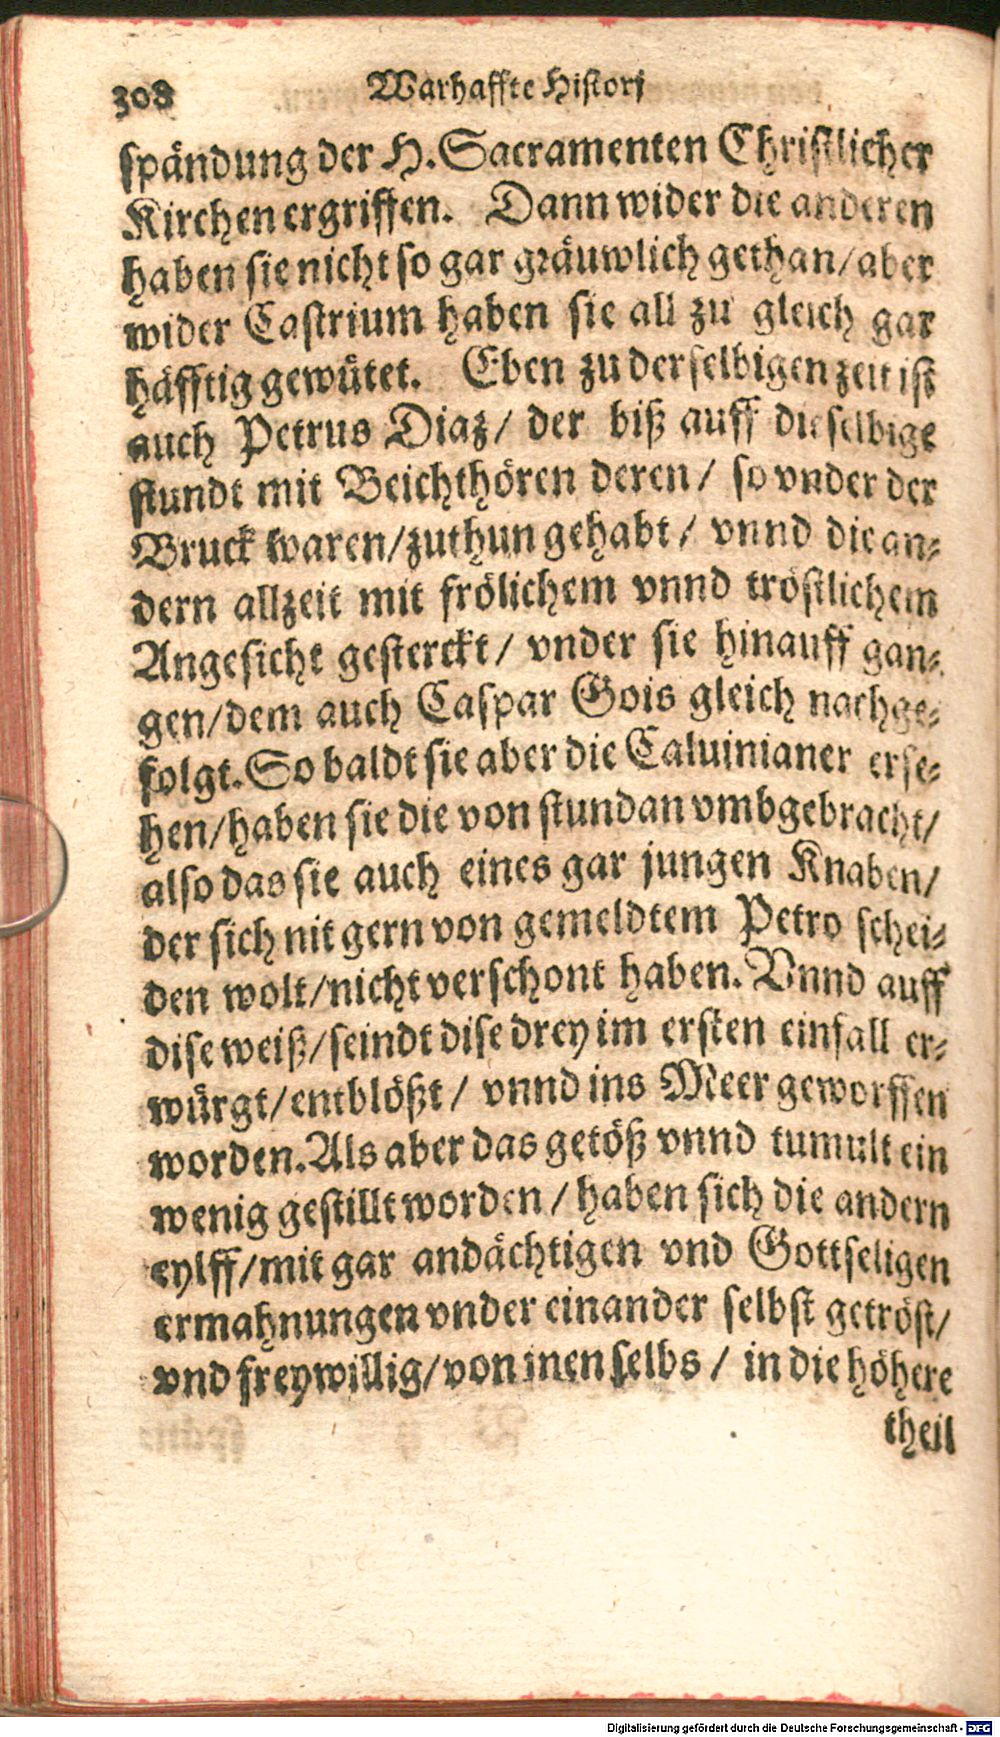 308 Warhaffte Historj
spändung der H. Sacramenten Christlicher
Kirchen ergriffen. Dann wider die anderen
haben sie nicht so gar gräuwlich gethan/aber
wider Castrium haben sie all zu gleich gar
häfftig gewütet. Eben zu derselbigen zeit ist
auch Petrus Diaz/ der biß auff dieselbige
stundt mit Beichthören deren/ so vnder der
Bruck waren/zuthun gehabt/ vnnd die an-
dern allzeit mit frölichem vnnd tröstlichem
Angesicht gesterckt/ vnder sie hinauff gan-
gen/dem auch Caspar Gois gleich nachge-
folgt. So baldt sie aber die Caluinianer erse-
hen/haben sie die von stundan vmbgebracht/
also das sie auch eines gar jungen Knaben/
der sich nit gern von gemeldtem Petro schei-
den wolt/nicht verschont haben. Vnnd auff
dise weiß/seindt dise drey im ersten einfall er-
würgt/entblößt/ vnnd ins Meer geworffen
worden. Als aber das getöß vnnd tumult ein
wenig gestillt worden/ haben sich die andern
eylff/mit gar andächtigen vnd Gottseligen
ermahnungen vnder einander selbst getröst/
vnd freywillig/von inen selbs/ in die höhere
theil
Digitalisierung gefördert durch die Deutsche Forschungsgemeinschaft - DFG